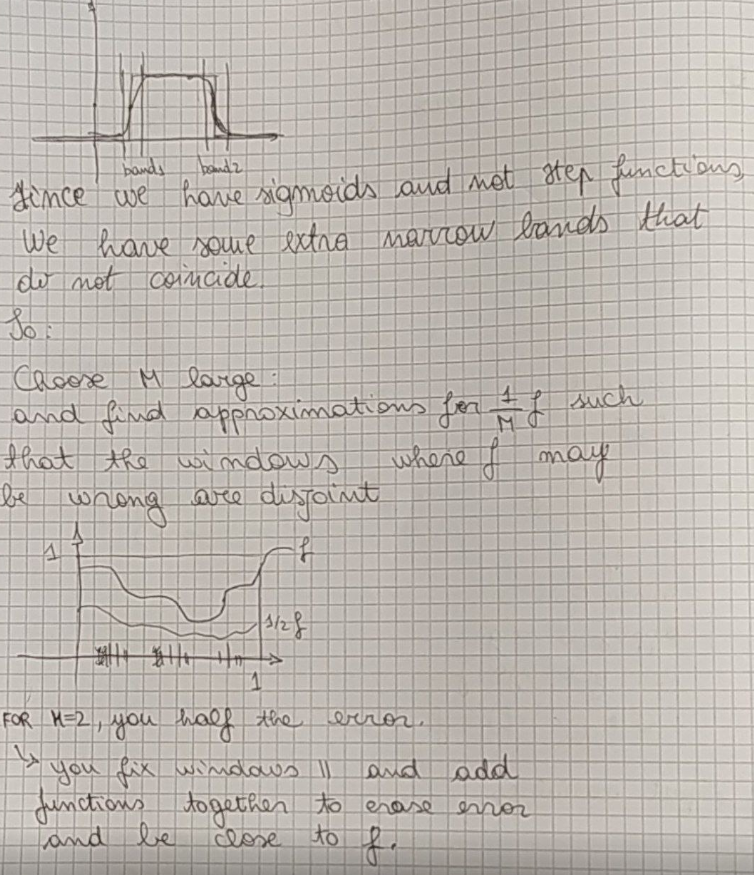 bands band2
Since we have sigmoids and not step functions,
We have some extra narrow bands that
do not coincide.
So:
Choose M large:
and find approximations for 1/M f such
that the windows where f may
be wrong are disjoint
1 f
1/2 f
1
FOR M=2, you half the error.
↳ you fix windows || and add
functions together to erase error
and be close to f.